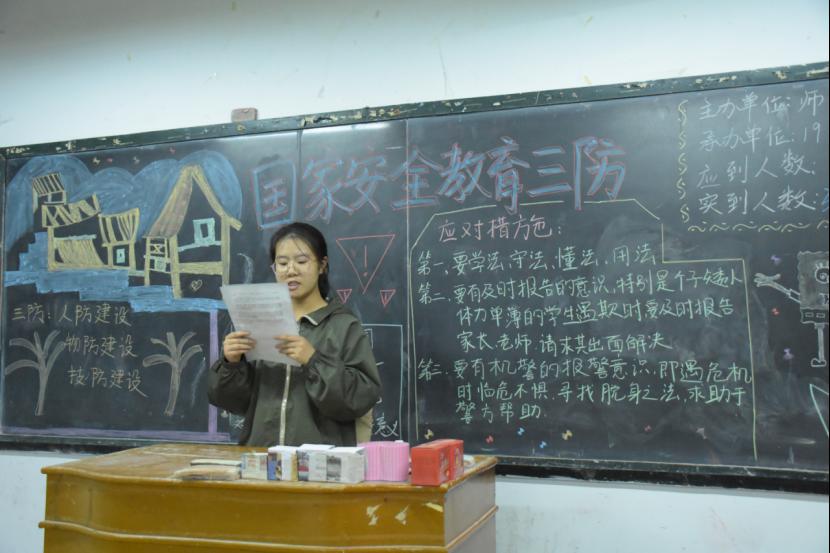 国家安全教育三防
三防：人防建设
物防建设
技防建设
应对措施：
第一、要学法、守法、懂法、用法
第二、要有及时报告的意识，特别是个子矮小
体力单薄的学生遇欺时要及时报告
家长、老师，请求其出面解决
第三、要有机警的报警意识，即遇危机
时临危不惧，寻找脱身之法，求助于
警方帮助.
主办单位：师
承办单位：19
应到人数：
实到人数：